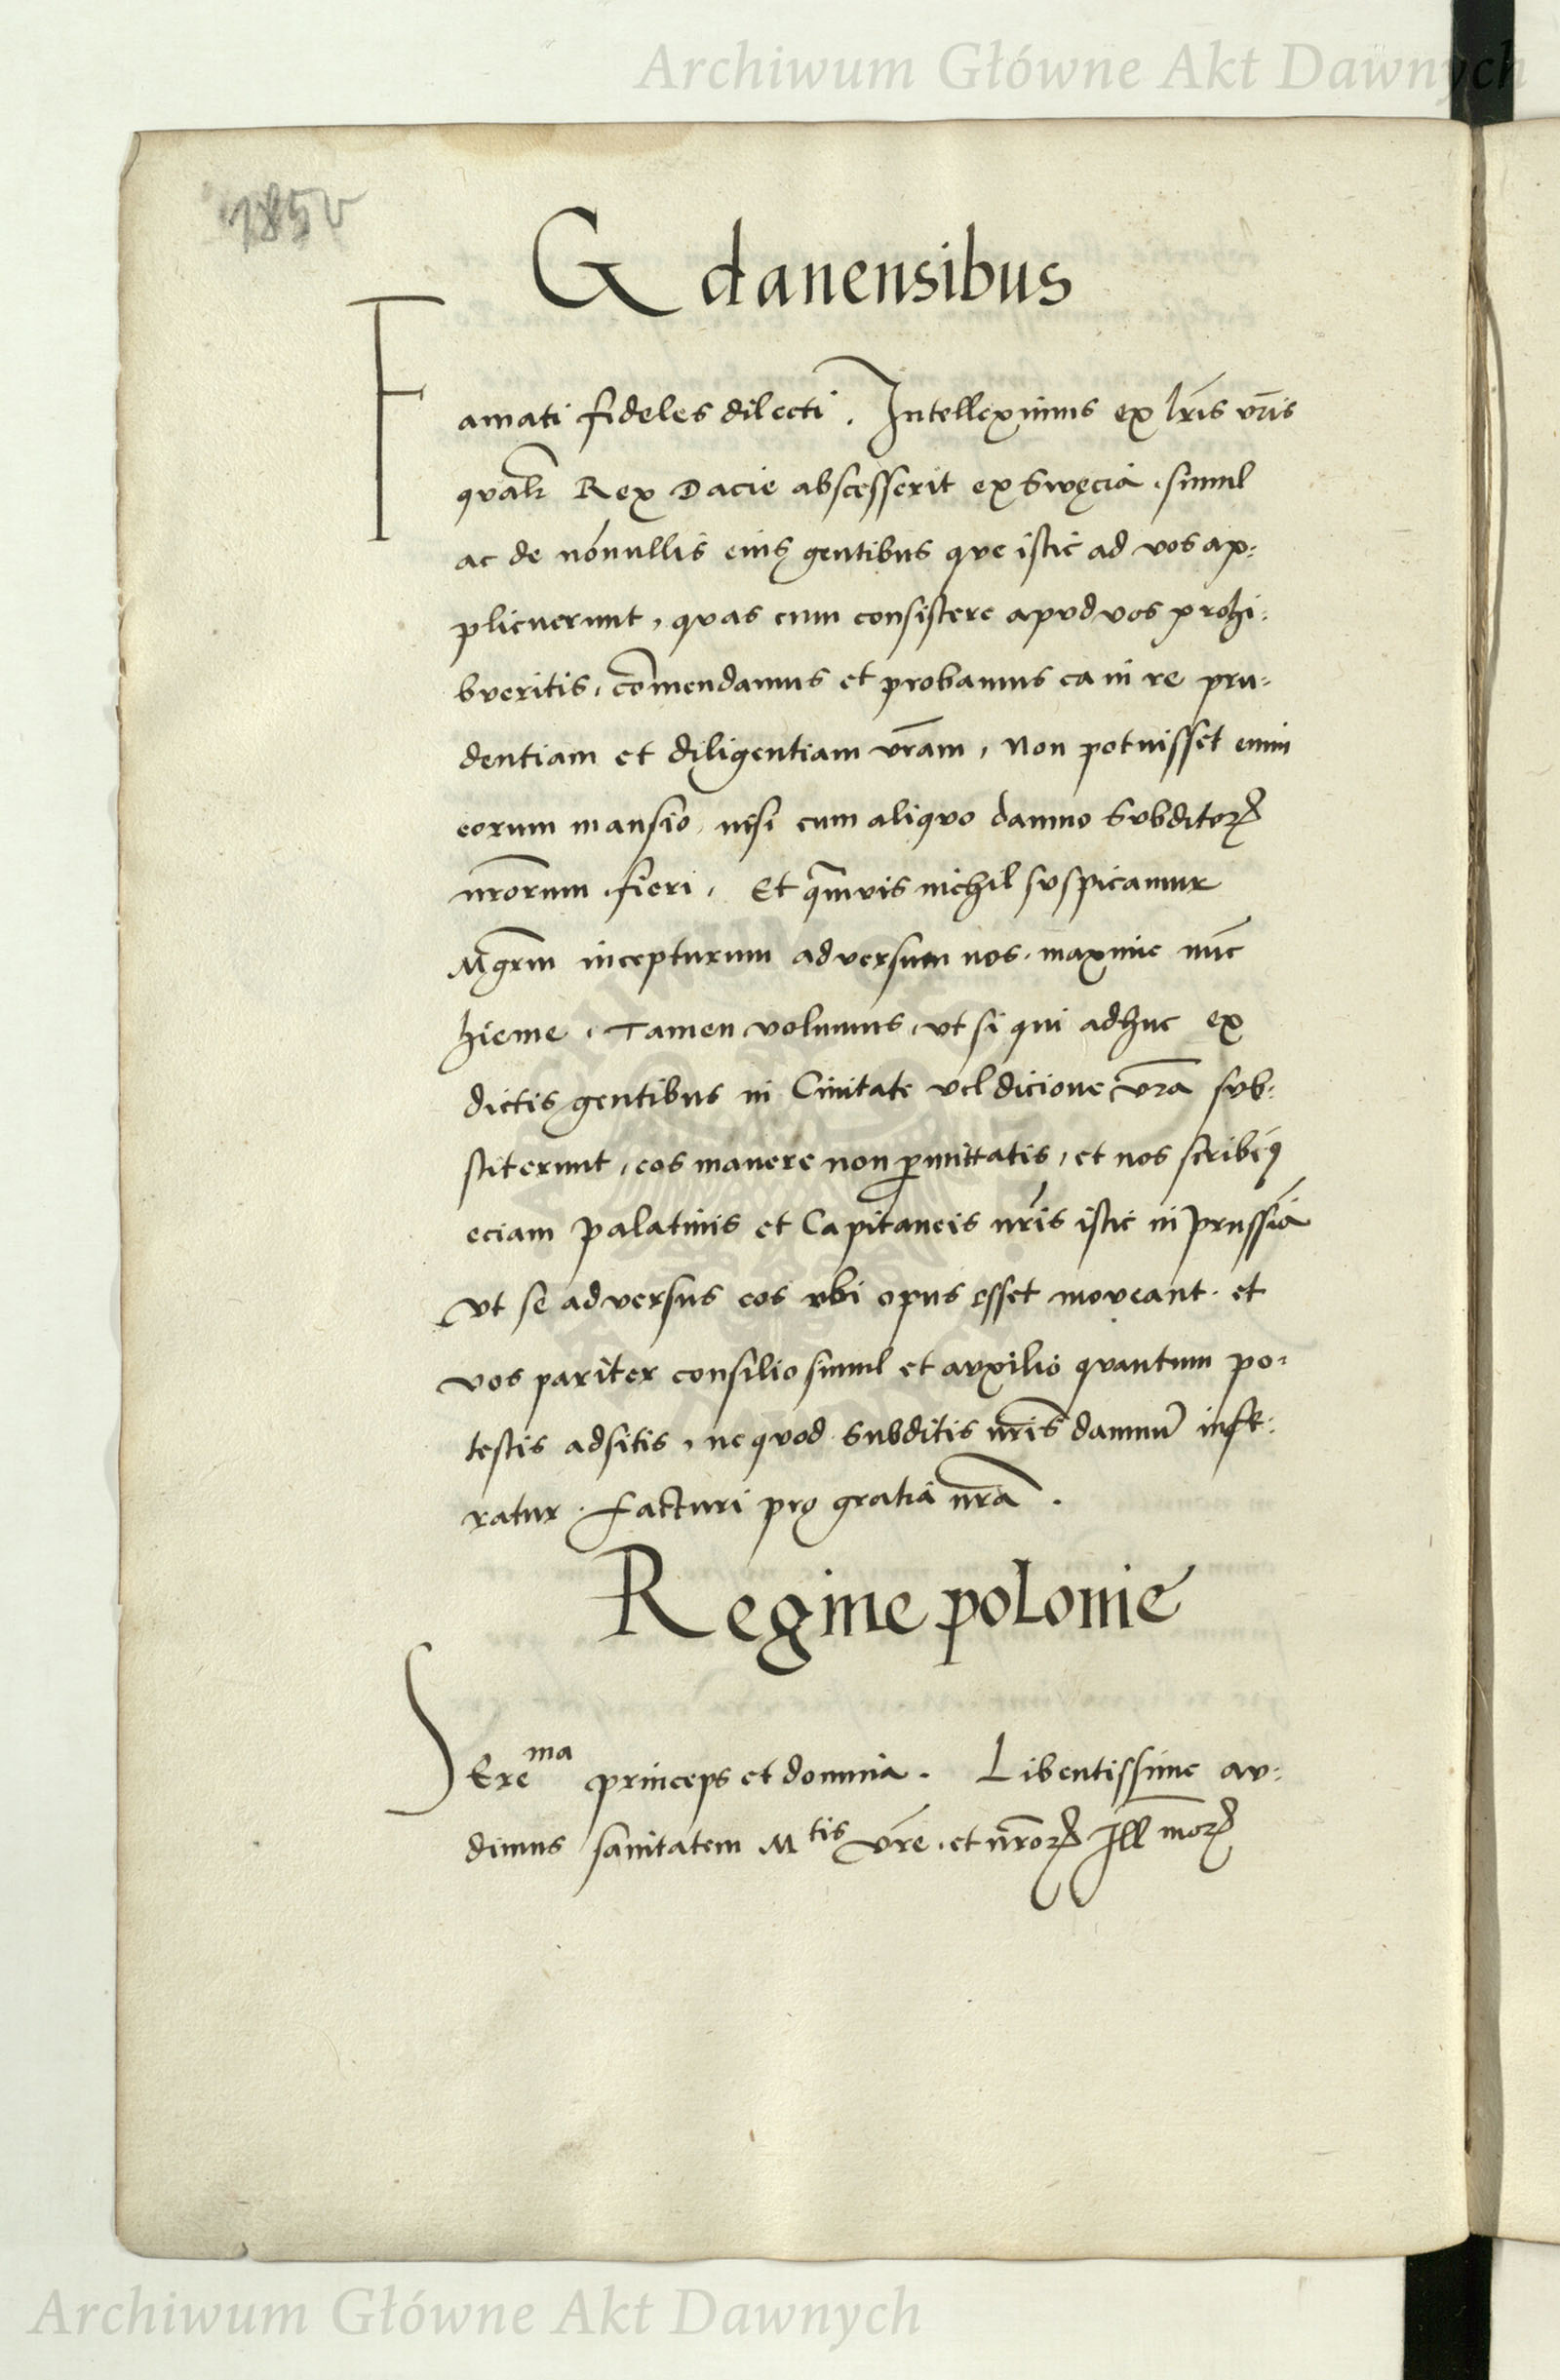 Archiwum Główne Akt Dawnych
185v
Gdanensibus
Famati fideles dilecti. Intelleximus ex lr̄is vr̄is
qual̄r Rex Dacie abscesserit ex Swęcia. simul
ac de nōnullis eius gentibus que istic ad vos ap-
plicuerunt, quas cum consistere apud vos prohi-
bveritis, cōmendamus et probamus ea in re pru-
dentiam et diligentiam vr̄am, Non potuisset enim
eorum mansio, nisi cum aliquo damno Svbditoꝝ
nr̄orum fieri, Et qͣmvis nichil svspicamur
Mgr̄m incepturum adversum nos, maxime nūc
hieme. Tamen volumus, vt si qui adhuc ex
dictis gentibus in Civitate vel dicione vr̄a svb-
stiterunt, eos manere non ꝑmittatis, et nos scribemꝰ
eciam palatinis et Capitaneis nr̄is istic in prussia
vt se adversus eos vbi opus esset moveant. et
vos pariter consilio simul et avxilio qvantum po-
testis adsitis, ne qvod Subditis nr̄is damnū infe-
ratur. facturi pro gratia nr̄a.
Regine polonie
SEreᵐᵃ princeps et domina. Libentissime av-
dimus sanitatem Mᵗⁱˢ vr̄e. et nr̄oꝝ Ill moꝝ
Archiwum Główne Akt Dawnych